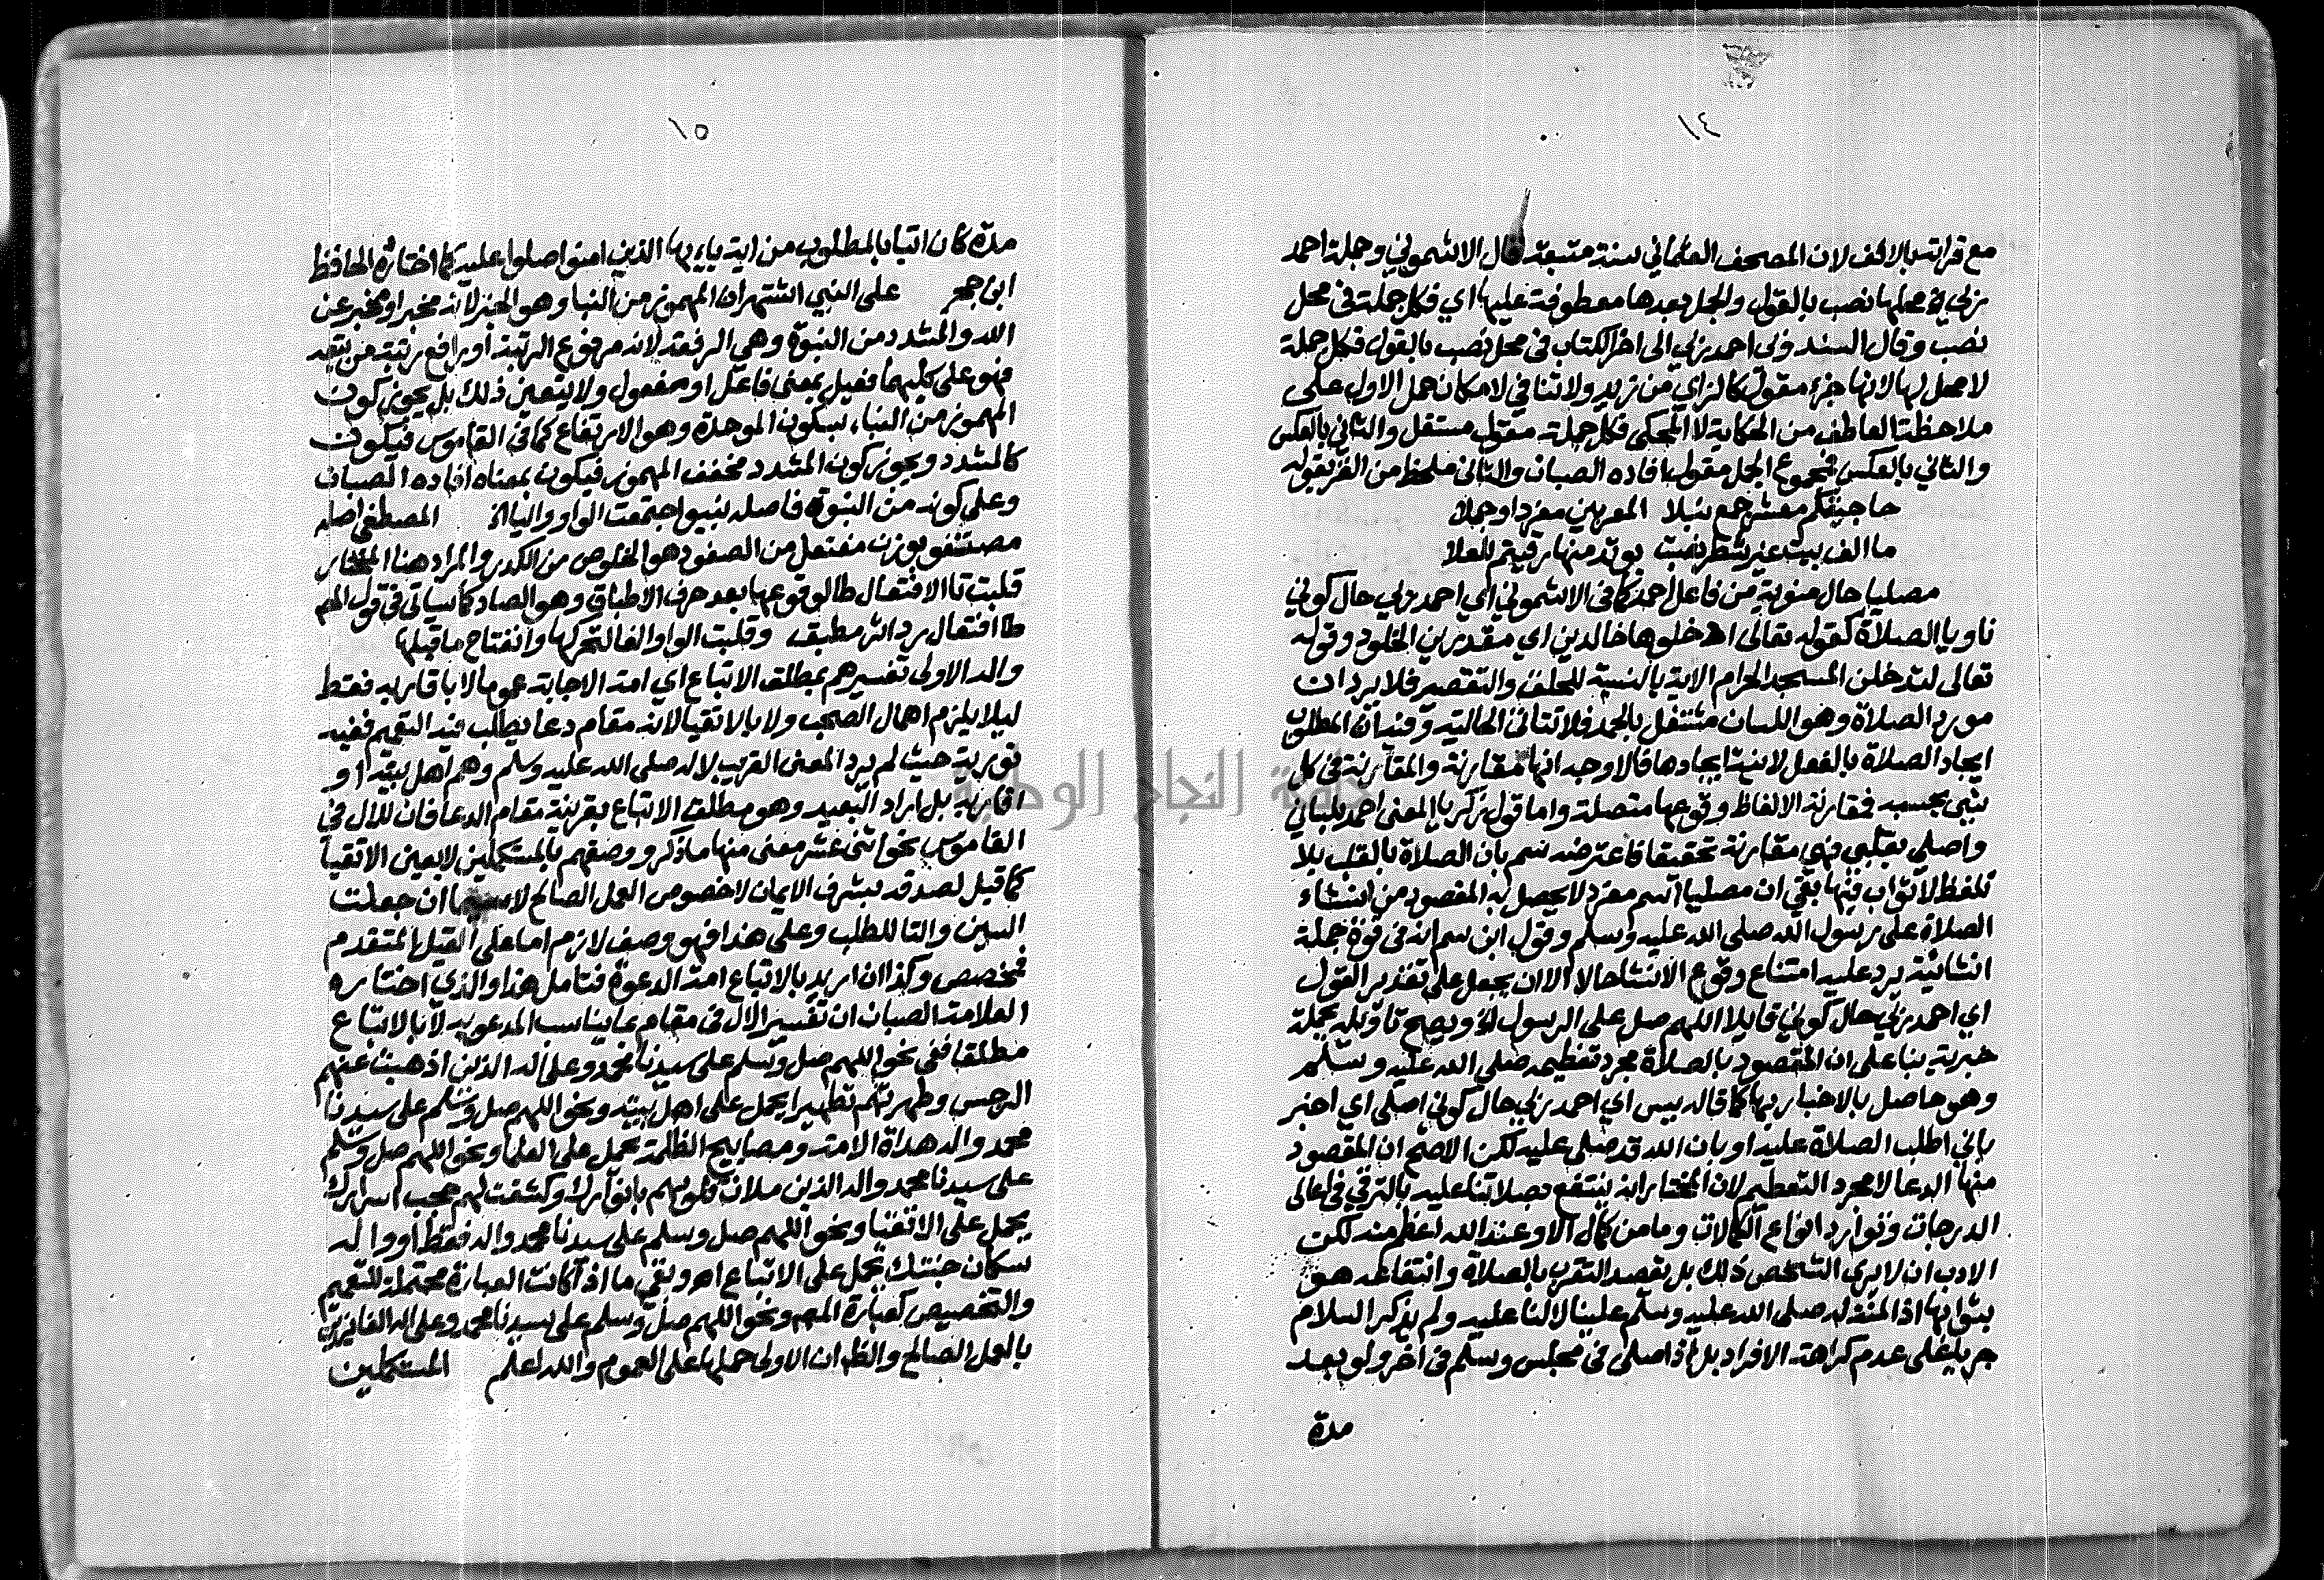 ١٤
مع قراته بالالف لان المصحف العثماني سنة متبعة قال الاشموني وجملة احمد
ربي في محلها نصب بالقول والجمل بعدها معطوفة عليها اي فكل جملة في محل
نصب وقال السندوبي احمد ربي الى اخر الكتاب في محل نصب بالقول فكل جملة
لا محل لها لانها جزء مقول كالزاي من زيد ولا تنافي لامكان حمل الاول على
ملاحظة العاطف من الحكاية لا المحكي فكل جملة مقول مستقل والثاني بالعكس
والثاني بالعكس فمجموع الجمل مقول افاده الصبان والثاني ملحظ من الغز بقوله
حاجيتكم معشر جمع نبلا المعربين مفردا وجملا
ما الف بيت غير شطر نصبت بوتد منها رقيتم للعلا
مصليا حال منوية من فاعل احمد كما في الاشموني اي احمد ربي حال كوني
ناويا الصلاة كقوله تعالى ادخلوها خالدين اي مقدرين الخلود وقوله
تعالى لتدخلن المسجد الحرام الاية بالنسبة للحلق والتقصير فلا يرد ان
مورد الصلاة وهو اللسان مشتغل بالحمد فلا تتاتى الحالية وفيه ان المطلوب
ايجاد الصلاة بالفعل لا نية ايجادها فالاوجه انها مقارنة والمقارنة في كل
شي بحسبه فمقارنة الالفاظ وقوعها متصلة واما قول زكريا المعنى احمد بلساني
واصلي بقلبي فهي مقارنة تحقيقا فاعترضه سم بان الصلاة بالقلب بلا
تلفظ لا ثواب فيها بقي ان مصليا اسم مفرد لا يحصل به المقصود من انشاء
الصلاة على رسول الله صلى الله عليه وسلم وقول ابن سم انه في قوة جملة
انشائية يرد عليه امتناع وقوع الانشا حالا الا ان يجعل على تقدير القول
اي احمد ربي حال كوني قايلا اللهم صل على الرسول الخ ويصح تاويله بجملة
خبرية بنا على ان المقصود بالصلاة مجرد تعظيمه صلى الله عليه وسلم
وهو حاصل بالاخبار بها كما قاله يس اي احمد ربي حال كوني اصلي اي اخبر
باني اطلب الصلاة عليه او بان الله قد صلى عليه لكن الاصح ان المقصود
منها الدعا لا مجرد التعظيم لان المختار انه ينتفع بصلاتنا عليه بالترقي في اعالى
الدرجات وتوارد انواع الكمالات وما من كمال الا وعند الله اعظم منه لكن
الادب ان لا يرى الشخص ذلك بل يقصد التقرب بالصلاة وانتفاعه هو
بثوابها اذ المنة له صلى الله عليه وسلم علينا لا لنا عليه ولم يذكر السلام
جريا على عدم كراهة الافراد بل اذا صلى في مجلس وسلم في اخر ولو بعد
مدة
١٥
مدة كان اتيا بالمطلوب من اية ياءيها الذين امنوا صلوا عليه كما اختاره الحافظ
ابن حجر على النبي اشتهر ان المهموز من النبا وهو الخبر لانه مخبر او مخبر عن
الله والمشدد من النبوة وهي الرفعة لانه مرفوع الرتبة او رافع رتبة من تبعه
فهو على كليهما فعيل بمعنى فاعل او مفعول ولا يتعين ذلك بل يجوز كون
المهموز من النبا بسكون الموحدة وهو الارتفاع كما في القاموس فيكون
كالمشدد ويجوز كون المشدد مخفف المهموز فيكون بمعناه افاده الصبان
وعلى كونه من النبوة فاصله نبيو اجتمعت الواو واليا الخ المصطفى اصله
مصتفو بوزن مفتعل من الصفو وهو الخلوص من الكدر والمراد هنا المختار
قلبت تا الافتعال طا لوقوعها بعد حرف الاطباق وهو الصاد كما سياتي في قول المص
طا افتعال رد اثر مطبق وقلبت الواو الفا لتحركها وانفتاح ما قبلها
واله الاولى تفسيرهم بمطلق الاتباع اي امة الاجابة عموما لا باقاربه فقط
ليلا يلزم اهمال الصحب ولا بالاتقيا لانه مقام دعا يطلب فيه التعميم ففيه
تورية حيث لم يرد المعنى القريب لاله صلى الله عليه وسلم وهم اهل بيته او
اقاربه بل اراد البعيد وهو مطلق الاتباع بقرينة مقام الدعا فان للال في
القاموس نحو اثنى عشر معنى منها ما ذكر ووصفهم بالمستكملين لا يعين الاتقيا
كما قيل لصدقه بشرف الايمان لا خصوص العمل الصالح لا سيما ان جعلت
السين والتا للطلب وعلى هذا فهو وصف لازم اما على القيل المتقدم
فمخصص وكذا ان اريد بالاتباع امة الدعوة فتامل هذا والذي اختاره
العلامة الصبان ان تفسير الال في مقام بما يناسب المدعو به لا بالاتباع
مطلقا ففي نحو اللهم صل وسلم على سيدنا محمد وعلى اله الذين اذهبت عنهم
الرجس وطهرتهم تطهيرا يحمل على اهل بيته ونحو اللهم صل وسلم على سيدنا
محمد واله هداة الامة ومصابيح الظلمة يحمل على العلما ونحو اللهم صل وسلم
على سيدنا محمد واله الذين ملات قلوبهم بانوارك وكشفت لهم حجب اسرارك
يحمل على الاتقيا ونحو اللهم صل وسلم على سيدنا محمد واله فقط او واله
سكان جنتك يحمل على الاتباع اه وبقي ما اذا كانت العبارة محتملة للتعميم
والتخصيص كعبارة المص ونحو اللهم صل وسلم على سيدنا محمد وعلى اله الفايزين
بالعمل الصالح والظ ان الاولى حملها على العموم والله اعلم المستكملين
جامعة النجاح الوطنية